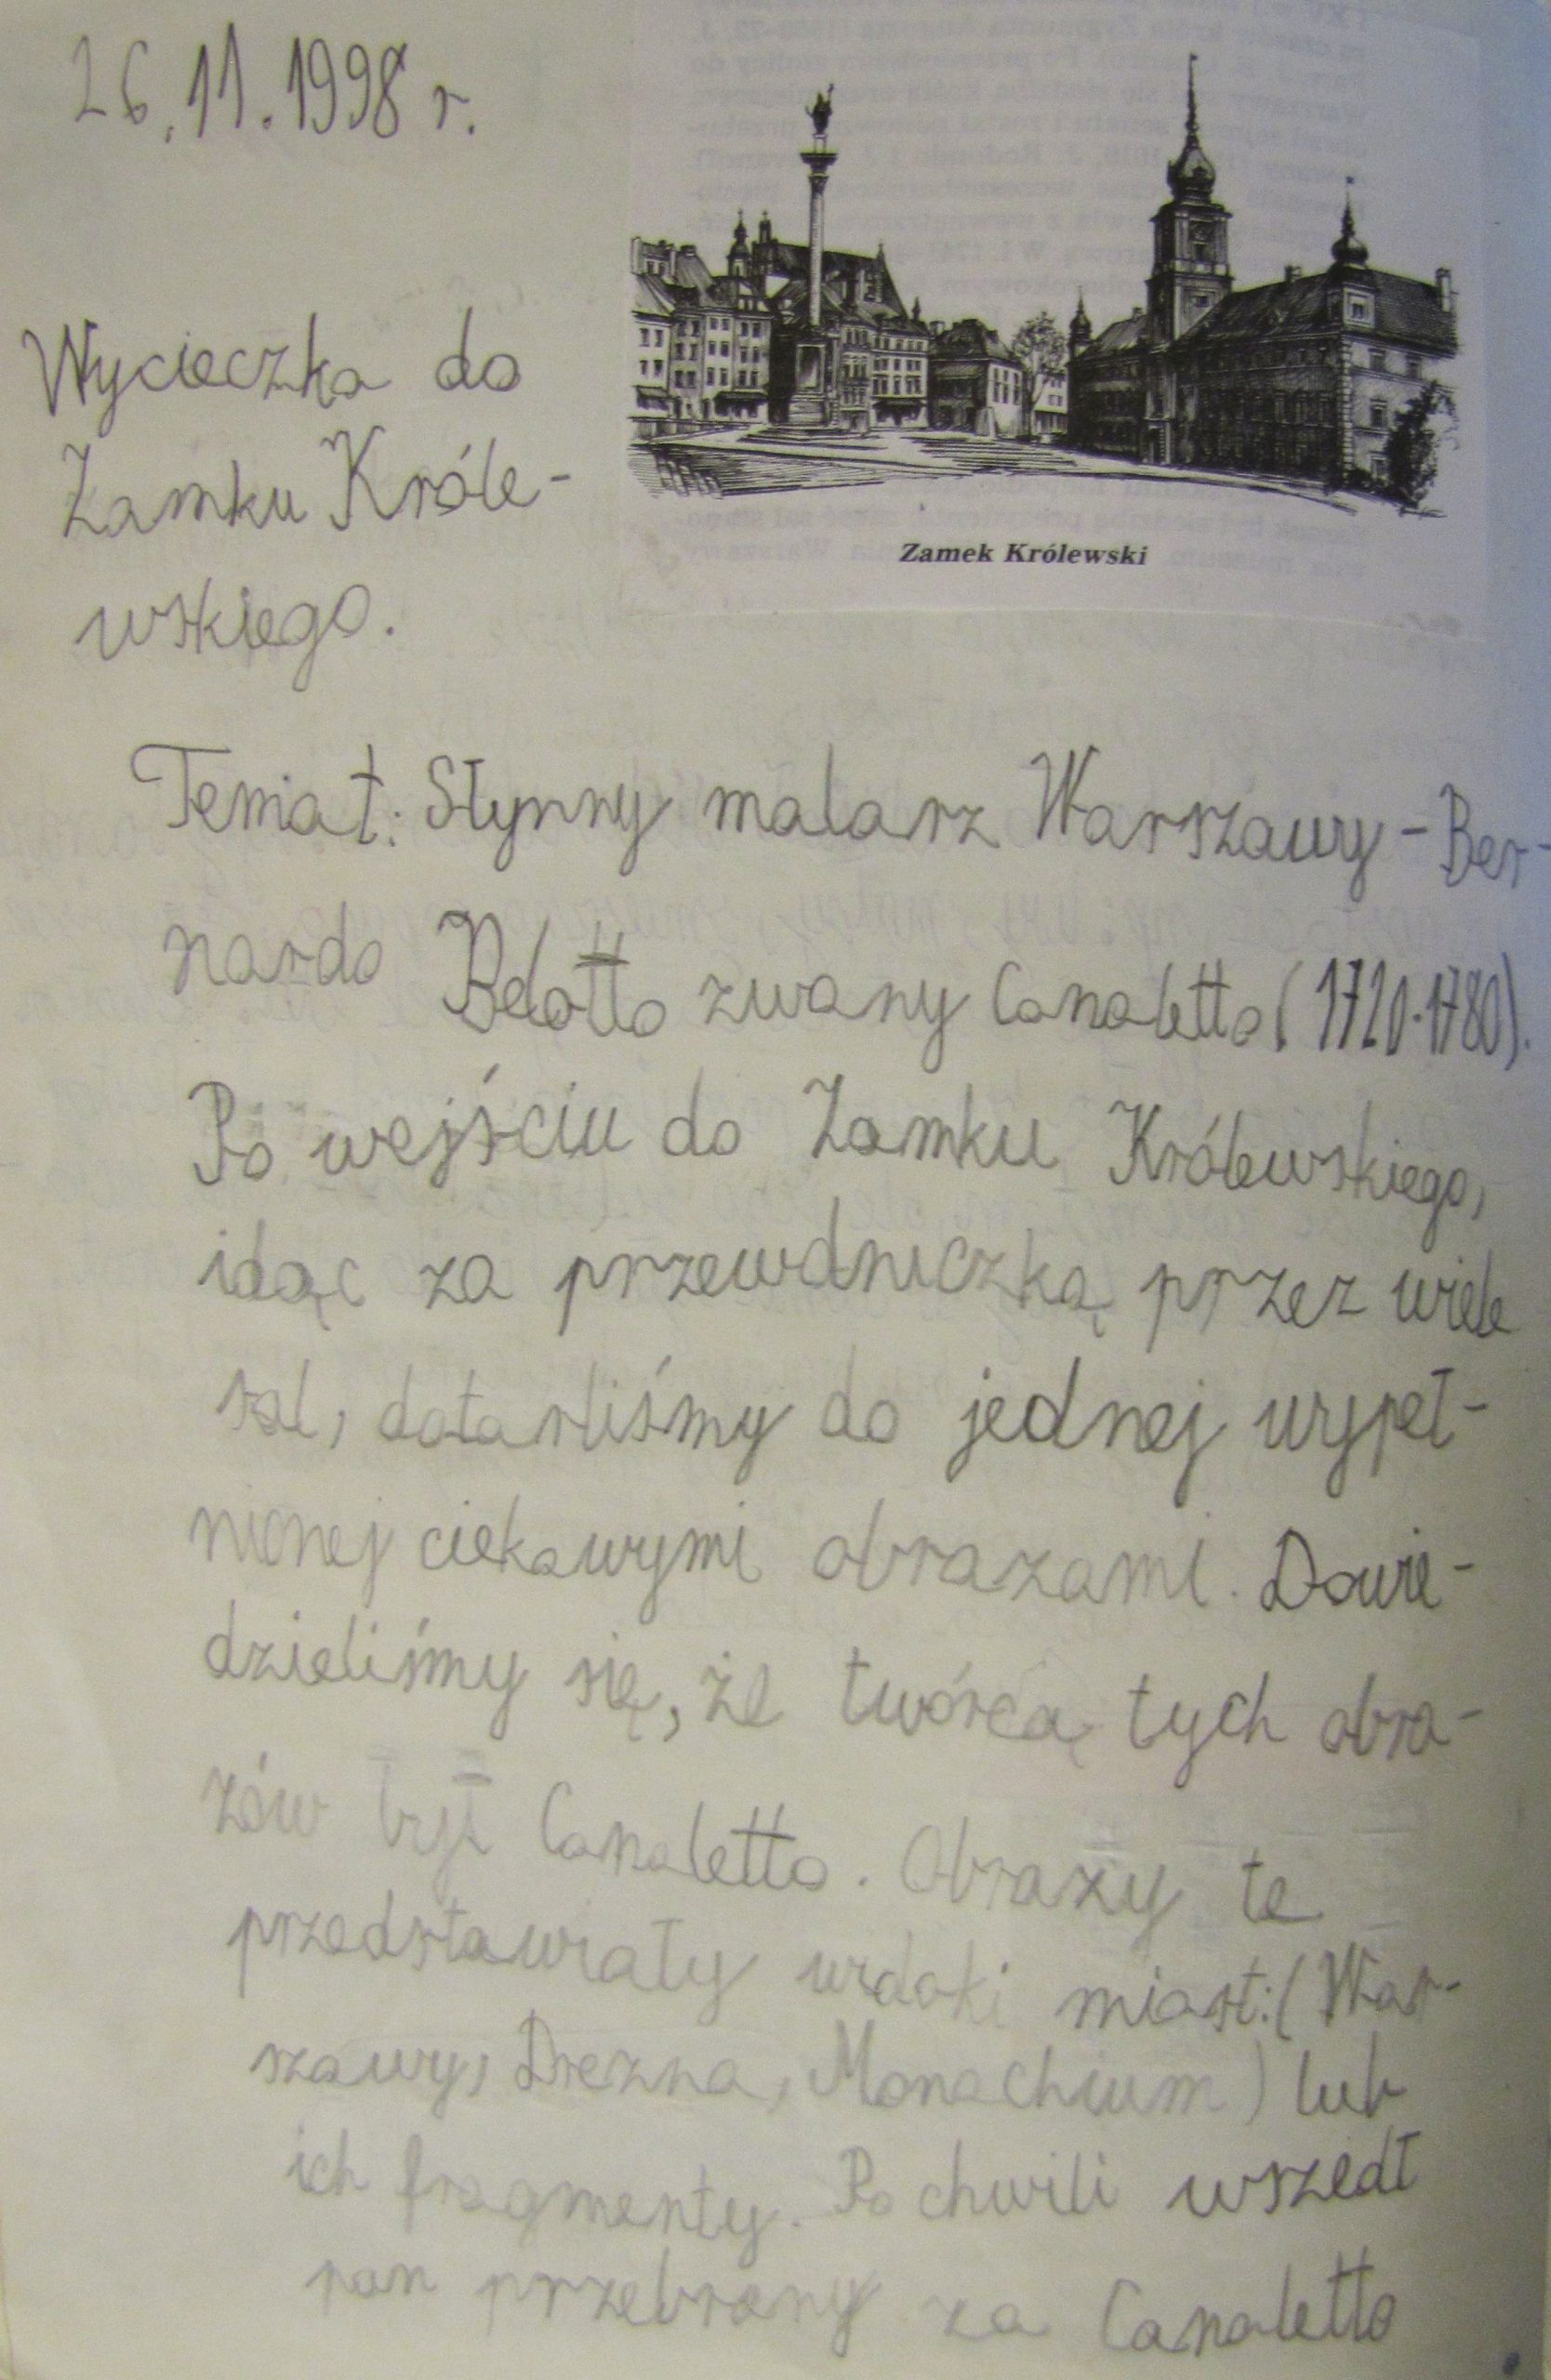 26.11.1998 r.
Zamek Królewski
Wycieczka do
Zamku Króle-
wskiego.
Temat: Słynny malarz Warszawy - Ber-
nardo Belotto zwany Canaletto (1720-1780).
Po wejściu do Zamku Królewskiego,
idąc za przewdniczką przez wiele
sal, dotarliśmy do jednej wypeł-
nionej ciekawymi obrazami. Dowie-
dzieliśmy się, że twórcą tych obra-
zów był Canaletto. Obrazy te
przedstawiały widoki miast: (War-
szawy, Drezna, Monachium) lub
ich fragmenty. Po chwili wszedł
pan przebrany za Canaletto